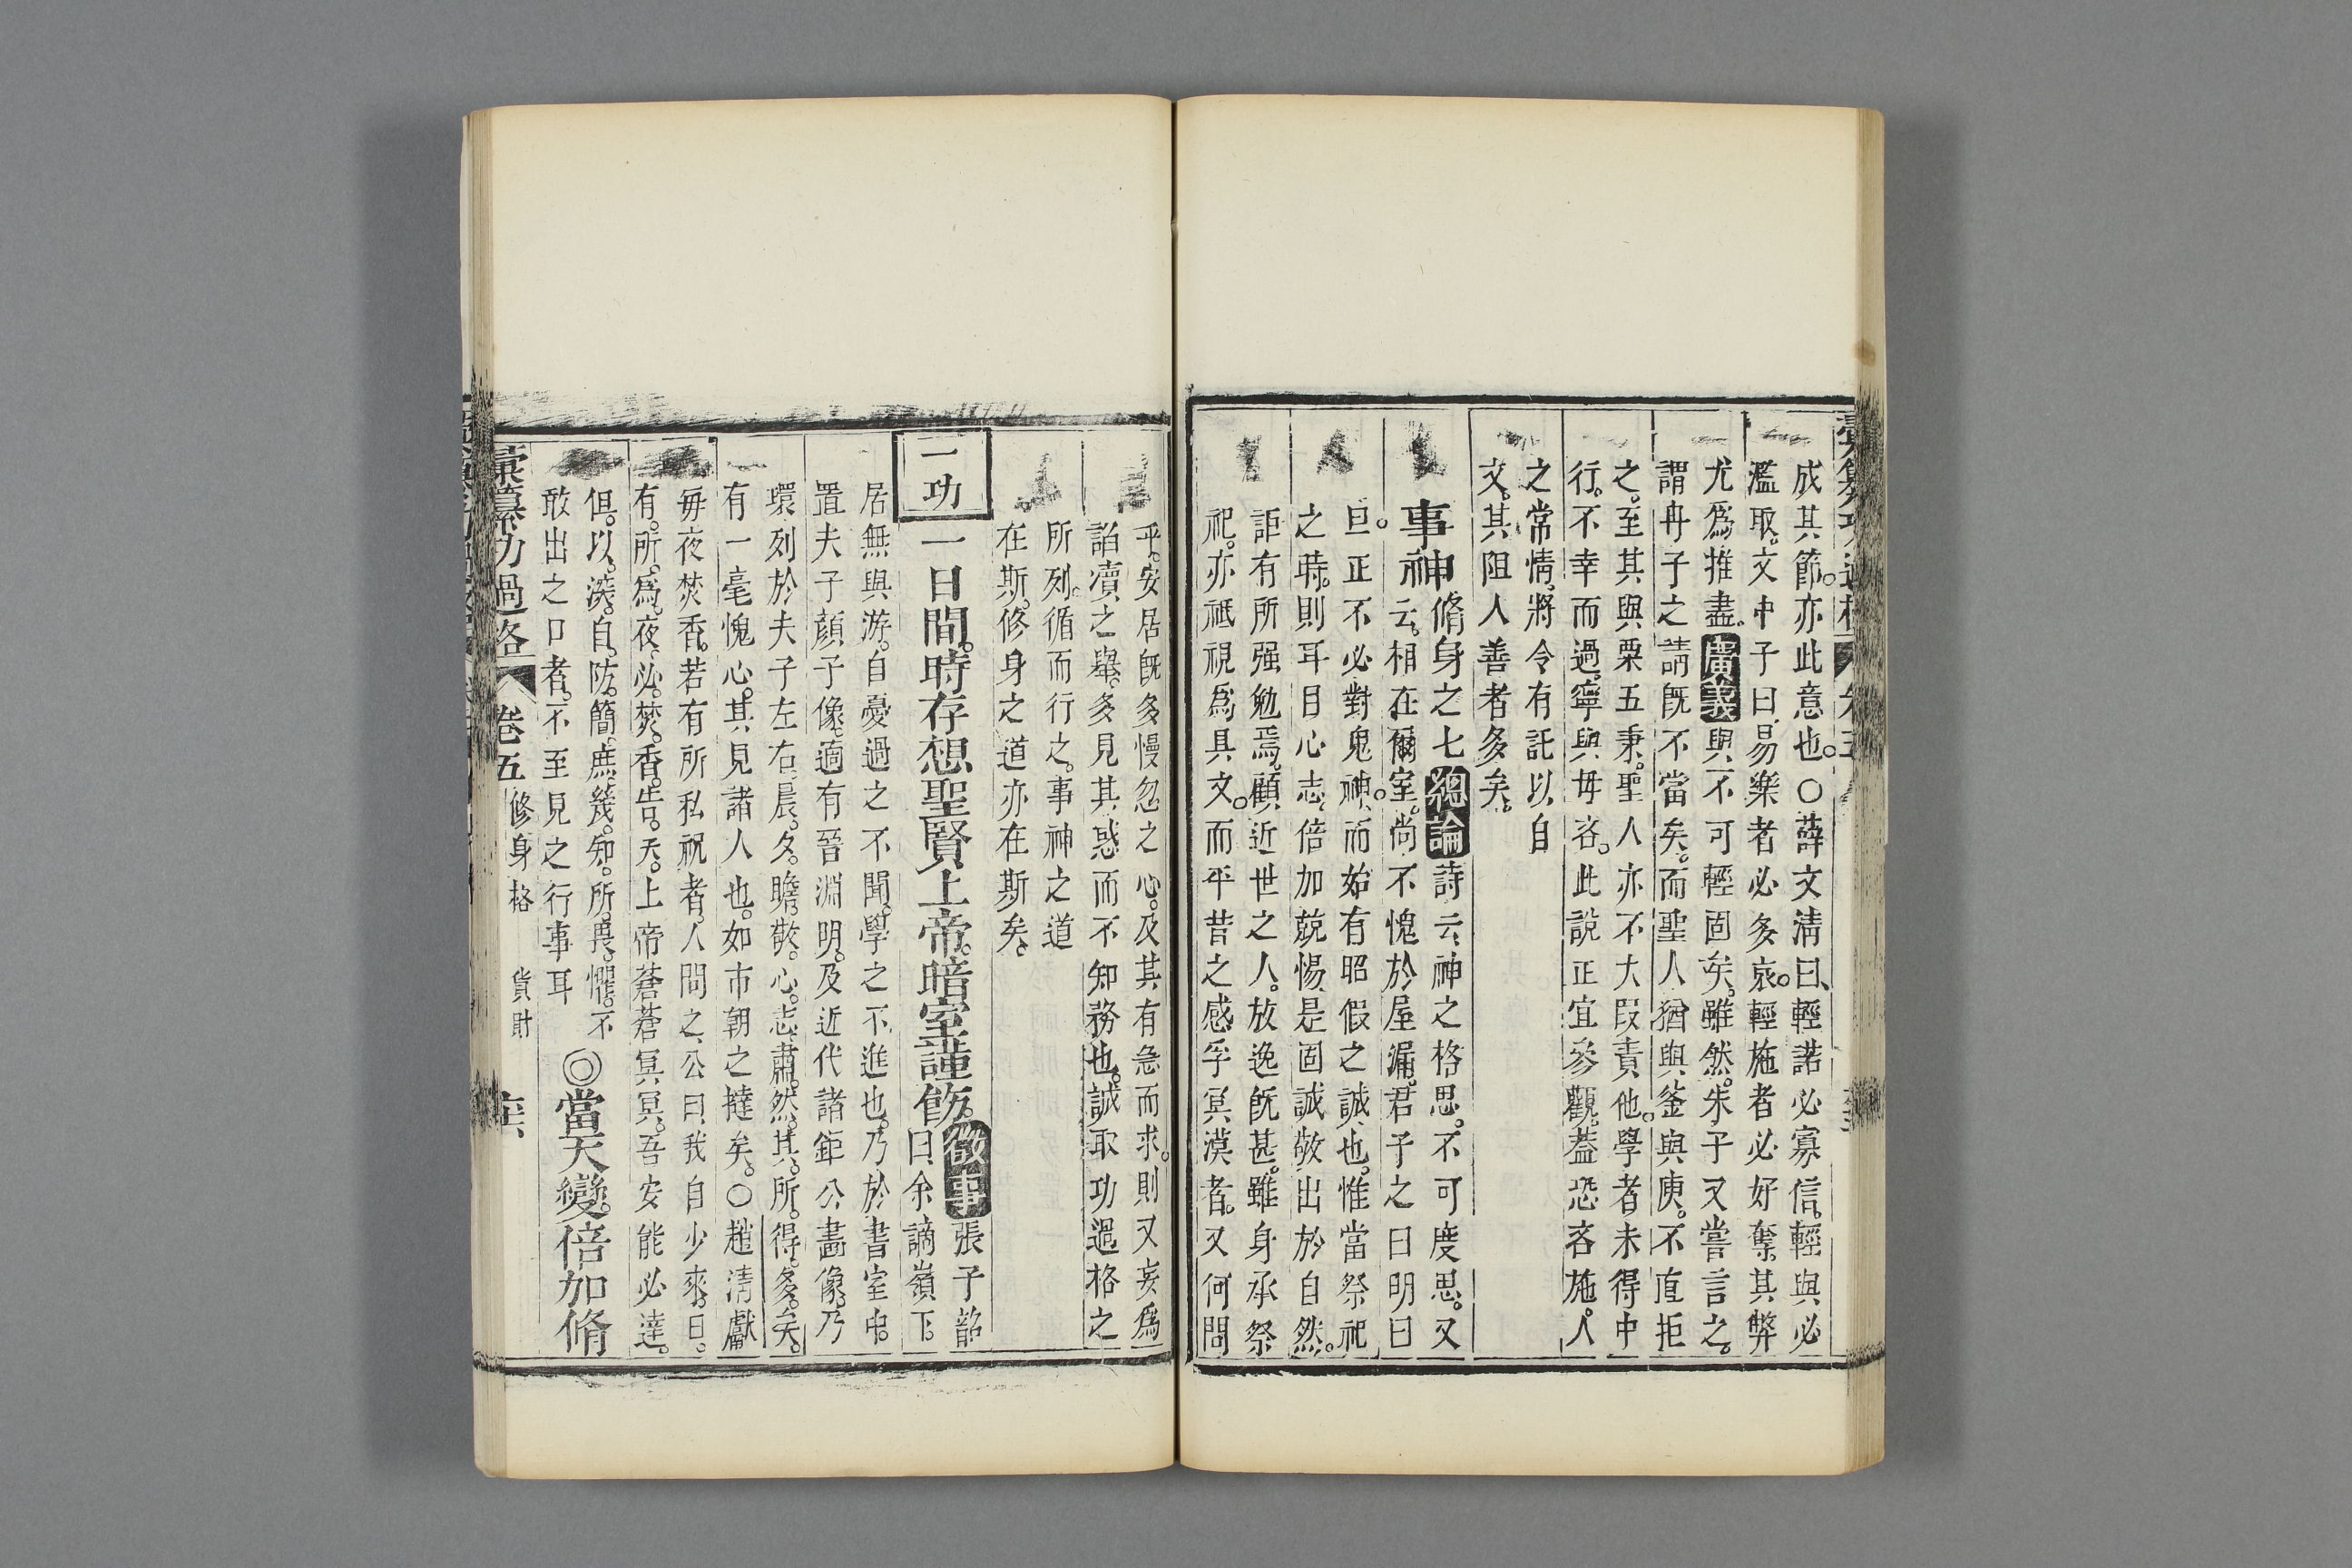 成其節。亦此意也。○薛文清曰、輕諾必寡信。輕與必
濫取。文中子曰、易樂者必多哀。輕施者必好奪。其弊
尤爲推盡。廣義與不可輕固矣。雖然。朱子又嘗言之。
謂冉子之請旣不當矣。而聖人猶與釜與庾。不直拒
之。至其與粟五秉。聖人亦不大段責他。學者未得中
行。不幸而過。寧與毋吝。此說正宜參觀。蓋恐吝施。人
之常情。將令有託以自
文。其阻人善者多矣。
事神脩身之七總論詩云、神之格思。不可度思。又
云。相在爾室。尚不愧於屋漏。君子之曰明曰
旦。正不必對鬼神。而始有昭假之誠也。惟當祭祀
之時。則耳目心志、倍加兢惕、是固誠敬出於自然。
詎有所强勉焉。顧近世之人。放逸旣甚。雖身承祭
祀。亦祗視爲具文。而平昔之感孚冥漠者。又何問
乎。安居旣多慢忽之心。及其有急而求。則又妄爲
諂瀆之舉。多見其惑而不知務也。誠取功過格之
所列。循而行之。事神之道
在斯。修身之道亦在斯矣。
一功
一日間。時存想聖賢上帝。暗室謹飭。徵事張子韶
曰、余謫嶺下。
居無與游。自憂過之不聞。學之不進也。乃於書室中。
置夫子顔子像。適有晉淵明。及近代諸鉅公畫像。乃
環列於夫子左右。晨。夕。瞻。敬。心。志。肅。然。其。所。得。多。矣。
有一毫愧心。其見諸人也。如市朝之撻矣。○趙清獻
每夜焚香。若有所私祝者。人問之、公曰、我自少來。日。
有。所。爲。夜。必。焚。香。告。天。上帝蒼蒼冥冥。吾安能必達。
但。以。淡。自。防。簡。庶。幾。知。所。畏。懼。不
敢出之口者。不至見之行事耳
◎當天變。倍加脩
彙纂功過格 卷五 修身格 貨財